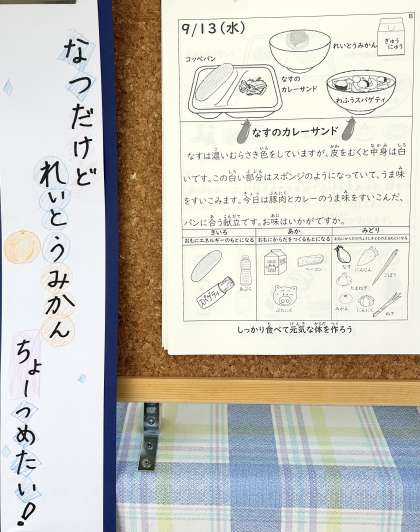 なつだけど
れいとうみかん
ちょーつめたい!
B
9/13(水)
コッペパン
なすの
カレーサンド
れいとうみかん
ぎゅう
にゅう
わふうスパゲティ
なすのカレーサンド
なすは濃いむらさき色をしていますが、皮をむくと中身は白
いです。この白い部分はスポンジのようになっていて、うま味
をすいこみます。今日は豚肉とカレーのうま味をすいこんだ、
パンに合う献立です。お味はいかがですか。
きいろ
おもにエネルギーのもとになる
あか
おもにからだをつくるもとになる
みどり
おもにからだのちょうしをととのえるもとになる
あぶら
ベーコン
ぶたにく
なす
にんじん
ごぼう
たまねぎ
みかん
にんにく
ねぎ
しっかり食べて元気な体を作ろう